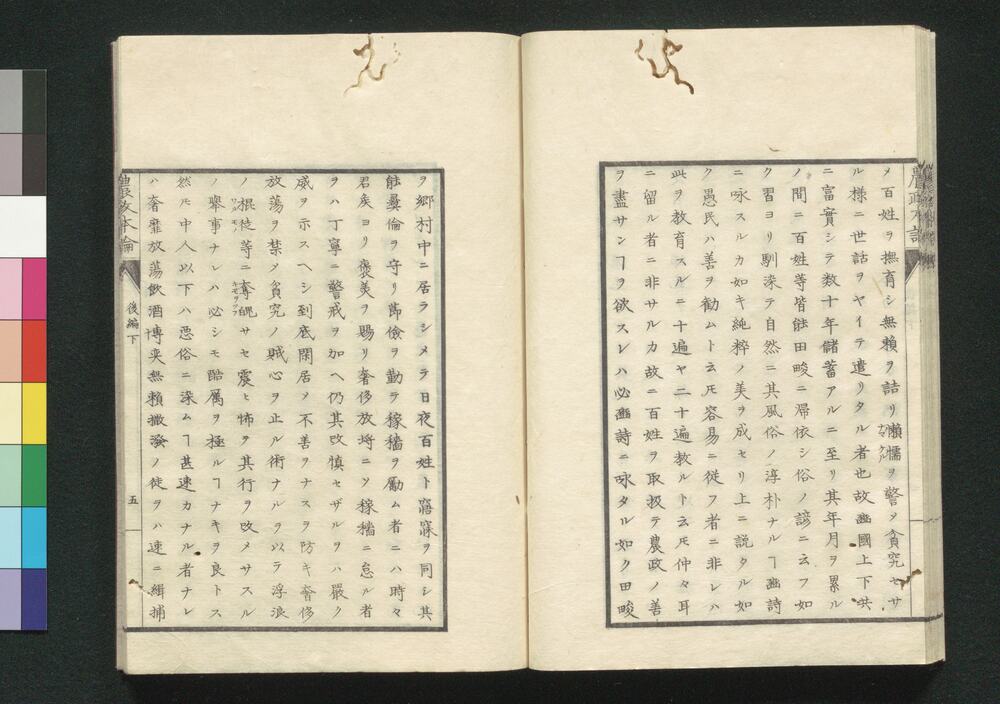 メ百姓ヲ撫育シ無賴ヲ詰リ懶惰ヲ警メ貪究セサ
ル樣ニ世話ヲヤイテ遣リタル者也故豳國上下共
ニ富實シテ数十年儲蓄アルニ至リ其年月ヲ累ル
ノ間ニ百姓等皆能田畯ニ帰依シ俗ノ諺ニ云フ如
ク習ヨリ馴染テ自然ニ其風俗ノ淳朴ナルヿ豳詩
ニ咏スルカ如キ純粹ノ美ヲ成セリ上ニ説タル如
ク愚民ハ善ヲ勸ムト云𪜈容易ニ従フ者ニ非レハ
此ヲ教育スルニ十遍ヤ二十遍教ルト云𪜈仲々耳
ニ留ル者ニ非サルカ故ニ百姓ヲ取扱テ農政ノ善
ヲ盡サンヿヲ欲スレハ必豳詩ニ咏タル如ク田畯
ヲ郷村中ニ居ラシメテ日夜百姓ト寤寐ヲ同シ其
能彝倫ヲ守リ節儉ヲ勤テ稼穡ヲ勵ム者ニハ時々
君矦ヨリ褒美ヲ賜リ奢侈放埒ニソ稼穡ニ怠ル者
ヲハ丁寧ニ警戒ヲ加ヘ仍其改慎セザルヲハ嚴ク
威ヲ示スヘシ到底閑居メ不善ヲナスヲ防キ奢侈
放蕩ヲ禁メ貪究ノ賊心ヲ止ル術ナルヲ以テ浮浪
ノ棍徒等ニ奪魄サセ震ヒ怖ヲ其行ヲ改メサスル
ノ擧事ナレハ必シモ酷厲ヲ極ルヿナキヲ良トス
然𪜈中人以下ハ悪俗ニ染ムヿ甚速カナル者ナレ
ハ奢靡放蕩飲酒博奕無賴撒溌ノ徒ヲハ速ニ緝捕
農政本論
後編下
五